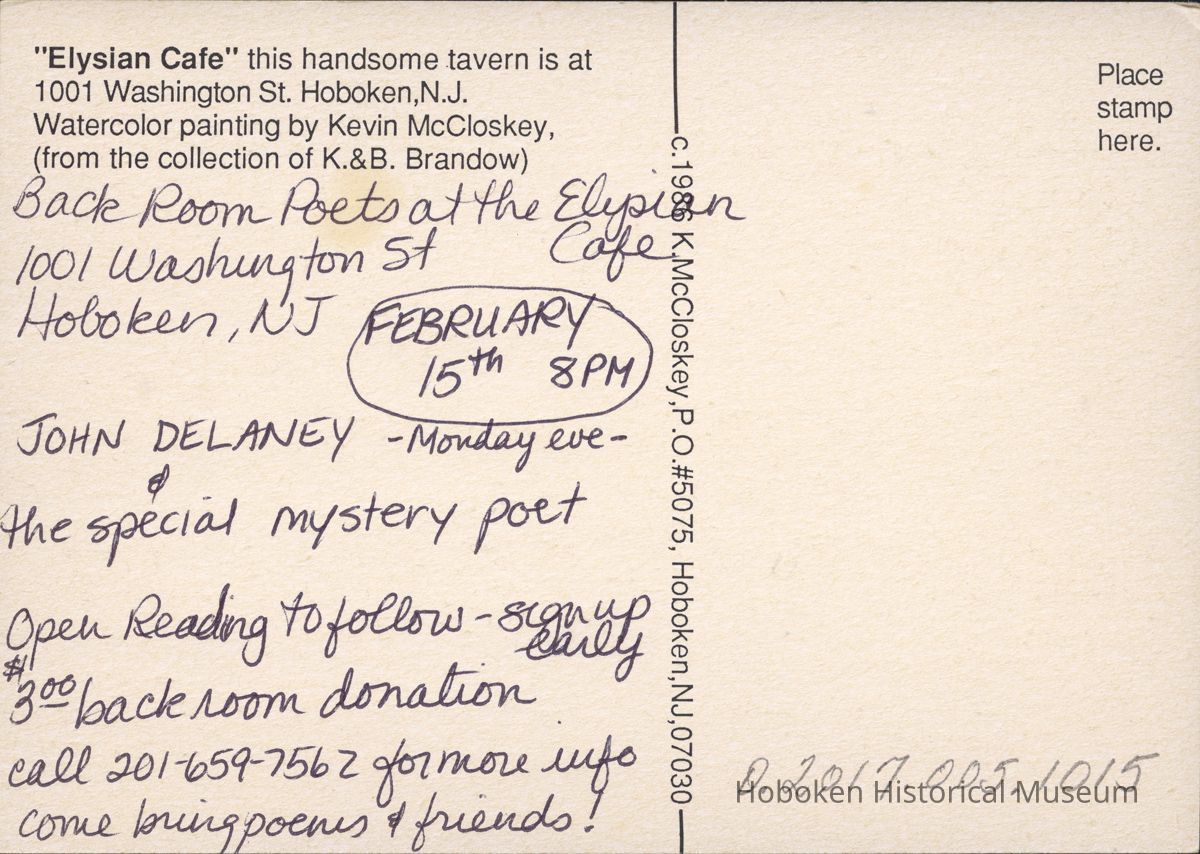 "Elysian Cafe" this handsome tavern is at
1001 Washington St. Hoboken,N.J.
Watercolor painting by Kevin McCloskey,
(from the collection of K.&B. Brandow)
Back Room Poets at the Elysian
Cafe
1001 Washington St
Hoboken, NJ
FEBRUARY
15th 8PM
JOHN DELANEY -Monday eve-
&
the special mystery poet
Open Reading to follow - sign up
early
$3.00 back room donation
call 201-659-7562 for more info
come bring poems & friends!
c.1986 K.McCloskey,P.O.#5075, Hoboken,NJ,07030
Place
stamp
here.
2017.005.1015
Hoboken Historical Museum